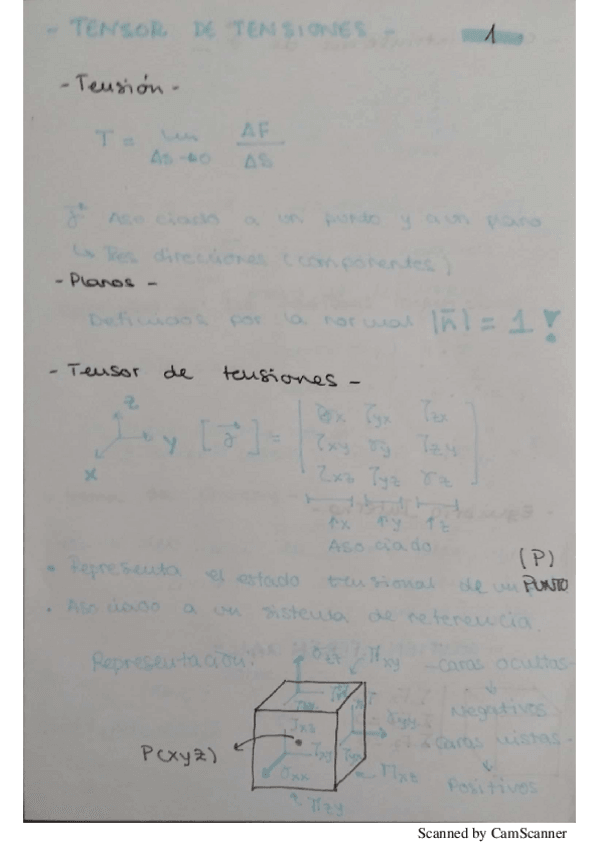 - TENSOR DE TENSIONES -
1
- Tensión -
T = lim ΔF / ΔS
Δs→0
asociado a un punto y a un plano
↳ Tres direcciones (componentes)
- Planos -
Definidos por la normal |n⃗| = 1 !
- Tensor de tensiones -
z
y
x
σx τyx τzx
τxy σy τzy
τxz τyz σz
↑x ↑y ↑z
Asociado
(P)
• Representa el estado tensional de un PUNTO
• Asociado a un sistema de referencia.
Representación:
σzz
Πxy
- Caras ocultas -
↓
Negativos
Caras vistas -
↓
Positivos
τxz
τxy
τyx
σyy
σxx
P(xyz)
Πxz
Πzy
Scanned by CamScanner